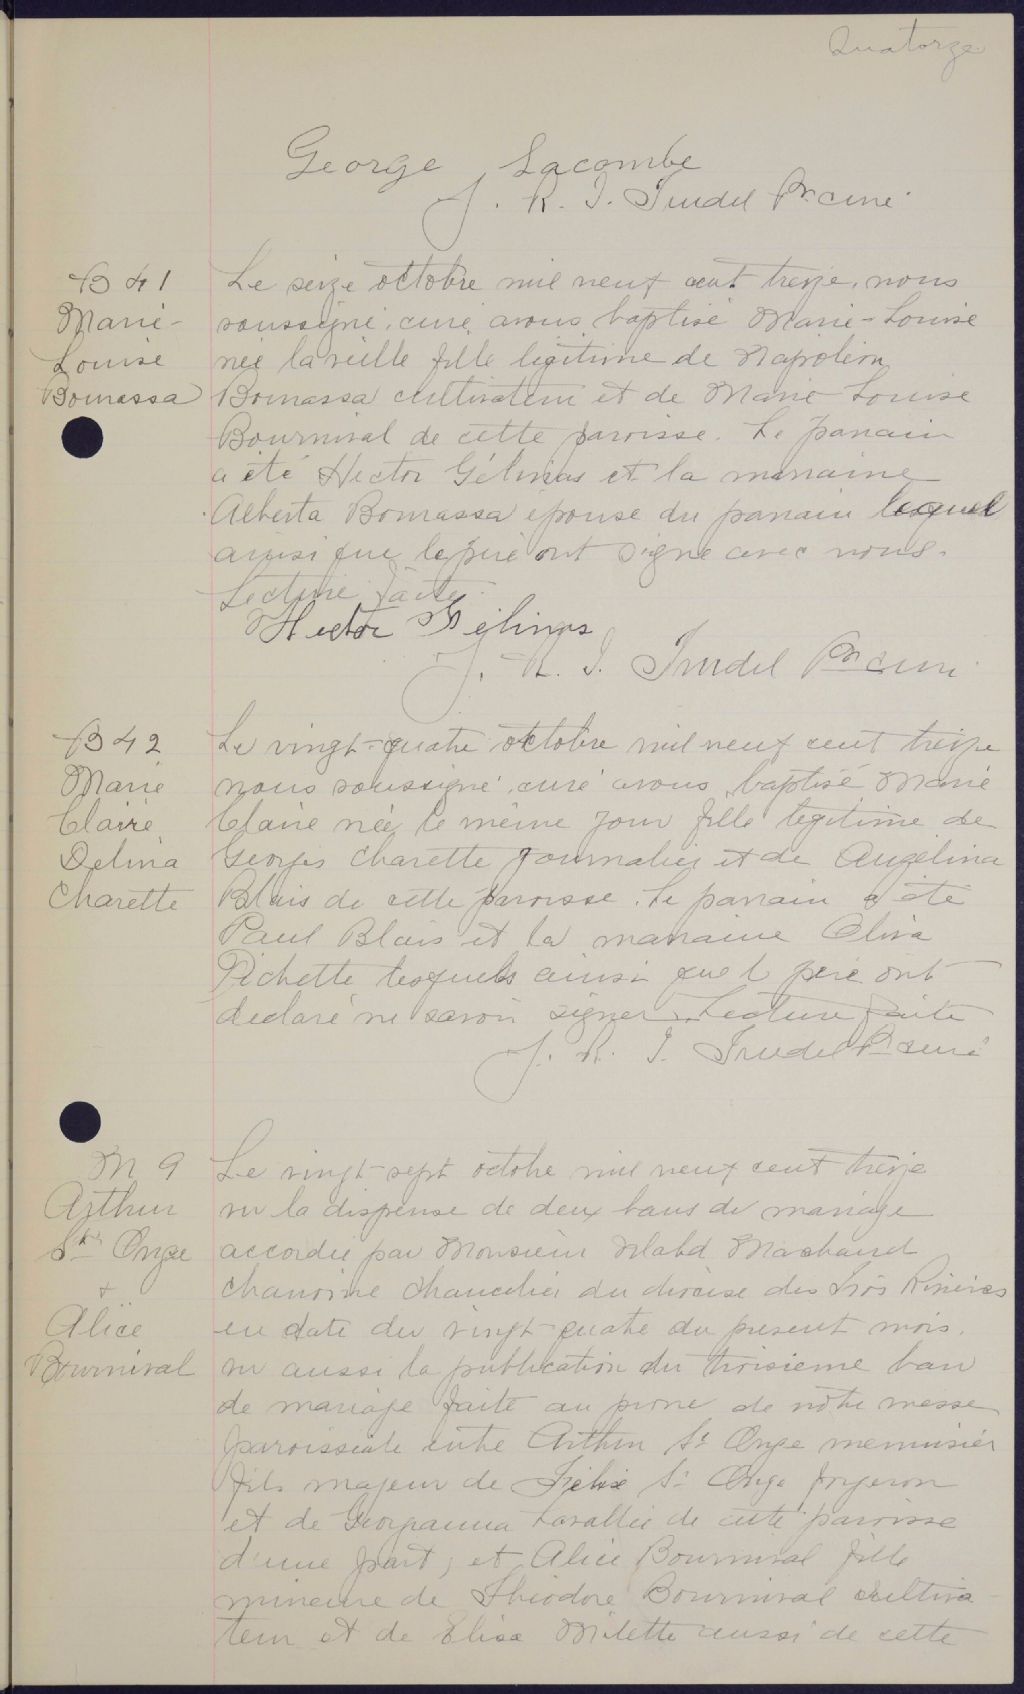 Quatorze
George Lacombe
J. R. I. Trudel Ptre curé
B 41
Marie-
Louise
Bourassa
Le seize octobre mil neuf cent treize, nous
soussigné, curé, avons baptisé Marie-Louise
née la veille fille légitime de Napoléon
Bourassa cultivateur et de Marie Louise
Bournival de cette paroisse. Le parrain
a été Hector Gélinas et la marraine
Alberta Bourassa épouse du parrain lequel
ainsi que le père ont signé avec nous.
Lecture faite.
Hector Gélinas
J. R. I. Trudel Ptre curé
B 42
Marie
Claire
Delina
Charette
Le vingt-quatre octobre mil neuf cent treize
nous soussigné, curé avons baptisé Marie
Claire née le même jour fille légitime de
Georges Charette journalier et de Angelina
Blais de cette paroisse. Le parrain a été
Paul Blais et la marraine Eliza
Pichette lesquels ainsi que l père ont
déclaré ne savoir signer. Lecture faite
J. R. I. Trudel Ptre curé
M 9
Arthur
St Onge
+
Alice
Bournival
Le vingt-sept octobre mil neuf cent treize
vu la dispense de deux bans de mariage
accordée par Monsieur Marchand
chanoine chancelier du diocèse des Trois Rivières
en date du vingt-quatre du present mois.
vu aussi la publication du troisieme ban
de mariage faite au prone de notre messe
paroissiale entre Arthur St Onge menuisier
fils majeur de Félix St Onge forgeron
et de Georgianna Lavallée de cette paroisse
d'une part, et Alice Bournival fille
mineure de Théodore Bournival cultiva
teur et de Elisa Milette aussi de cette